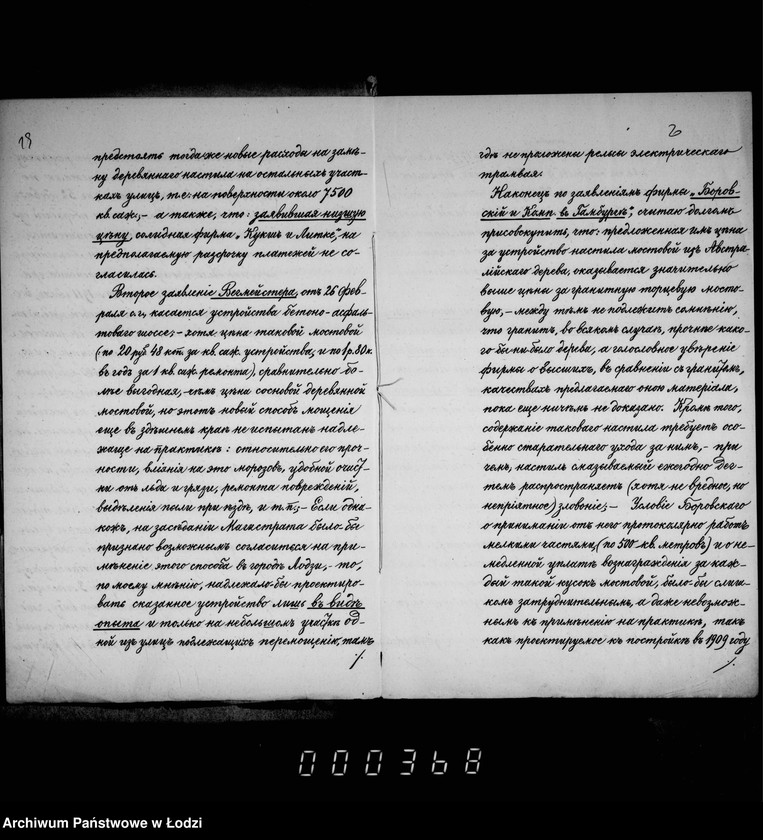 19
предстоятъ тогда же новые расходы на замѣ-
ну деревяннаго настила на остальныхъ участ-
кахъ улицъ, т.е. на поверхности около 7500
кв. саж., - а также, что: заявившая низшую
цѣну, солидная фирма „Кукшъ и Литке“, на
предполагаемую разсрочку платежей не со-
гласилась.
Второе заявленіе Вегмейстера, отъ 26 фев-
раля с.г., касается устройства бетоно-асфаль-
товаго шоссе; - хотя цѣна таковой мостовой
(по 20 руб. 48 коп. за кв. саж. устройства, и по 1 р. 80 к.
въ годъ за 1 кв. саж. ремонта), сравнительно бо-
лѣе выгодная, чѣмъ цѣна сосновой деревянной
мостовой, но этотъ новый способъ мощенія
еще въ здѣшнемъ краѣ не испытанъ надле-
жаще на практикѣ: относительно его проч-
ности, вліянія на это морозовъ, удобной очист-
ки отъ льда и грязи, ремонта поврежденій,
выдѣленія пыли при ѣздѣ, и т.п.; - Если одна-
кожъ, на засѣданіи Магистрата было-бы
признано возможнымъ согласиться на при-
мѣненіе этого способа въ городѣ Лодзи, - то,
по моему мнѣнію, надлежало-бы проектиро-
вать сказанное устройство лишь въ видѣ
опыта и только на небольшомъ участкѣ од-
ной изъ улицъ подлежащихъ перемощенію, тамъ
./.
гдѣ не проложены рельсы электрическаго
трамвая.
Наконецъ по заявленіямъ фирмы „Боров-
скій и Комп. въ Гамбургѣ“, считаю долгомъ
присовокупить, что: предложенная имъ цѣна
за устройство настила мостовой изъ Австра-
лійскаго дерева, оказывается значительно
выше цѣны за гранитную торцевую мосто-
вую, - между тѣмъ не подлежитъ сомнѣнію,
что гранитъ, во всякомъ случаѣ, прочнѣе како-
го бы ни было дерева, а голословное увѣреніе
фирмы о высшихъ, въ сравненіи съ гранитомъ,
качествахъ предлагаемаго оною матеріала,
пока еще ничѣмъ не доказано. Кромѣ того,
содержаніе таковаго настила требуетъ осо-
бенно старательнаго ухода за нимъ, - при
чемъ, настилъ смазываемый ежегодно дег-
темъ распространяетъ (хотя не вредное, но
непріятное) зловоніе; - Условіе Боровскаго
о приниманіи отъ него протоколярно работъ
мелкими частями, (по 500 кв. метровъ) и о не-
медленной уплатѣ вознагражденія за каж-
дый такой кусокъ мостовой, было-бы слиш-
комъ затруднительнымъ, а даже невозмож-
нымъ къ примѣненію на практикѣ, такъ
какъ проектируемое къ постройкѣ въ 1909 году
./.
000368
Archiwum Państwowe w Łodzi